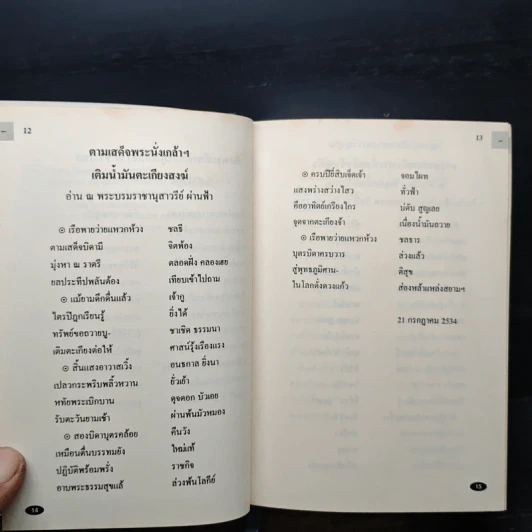 12
ตามเสด็จพระนั่งเกล้าฯ
เติมน้ำมันตะเกียงสงฆ์
อ่าน ณ พระบรมราชานุสาวรีย์ ผ่านฟ้า
๏ เรือพายว่ายแหวกห้วง ชลธี
ตามเสด็จบิดามี จิตพ้อง
มุ่งหา ณ ราตรี ตลอดฝั่ง คลองเฮย
ยลประทีปพลันต้อง เทียบเข้าไปถาม
๏ แม้ยามดึกดื่นแล้ว เจ้ากู
ไตรปิฎกเรียนรู้ ยิ่งได้
ทรัพย์ขอถวายบู- ชาเชิด ธรรมนา
เติมตะเกียงต่อให้ ศาสน์รุ้งเรืองแรง
๏ สิ้นแสงอาวาสเวิ้ง อนธกาล ยิ่งนา
เปลวกระพริบพลิ้วหวาน ยั่วเย้า
หทัยพระเบิกบาน ดุจดอก บัวเอย
รับตะวันยามเช้า ผ่านพ้นมัวหมอง
๏ สองบิดาบุตรคล้อย คืนวัง
เหมือนตื่นบรรทมยัง ใหม่แท้
ปฏิบัติพร้อมพรั่ง ราชกิจ
อาบพระธรรมสุขแล้ ล่วงพ้นโลกีย์
14
13
๏ ครบปียี่สิบเจ็ดเจ้า จอมไผท
แสงพร่างสว่างไสว ทั่วฟ้า
คืออาทิตย์เกรียงไกร บ่ดับ สูญเลย
จุดจากตะเกียงจ้า เนื่องน้ำมันถวาย
๏ เรือพายว่ายแหวกห้วง ชลธาร
บุตรบิดาครบวาร ล่วงแล้ว
สู่พุทธภูมิศาน- ติสุข
ในโลกดั่งดวงแก้ว ส่องหล้าแหล่งสยามฯ
21 กรกฎาคม 2534
15